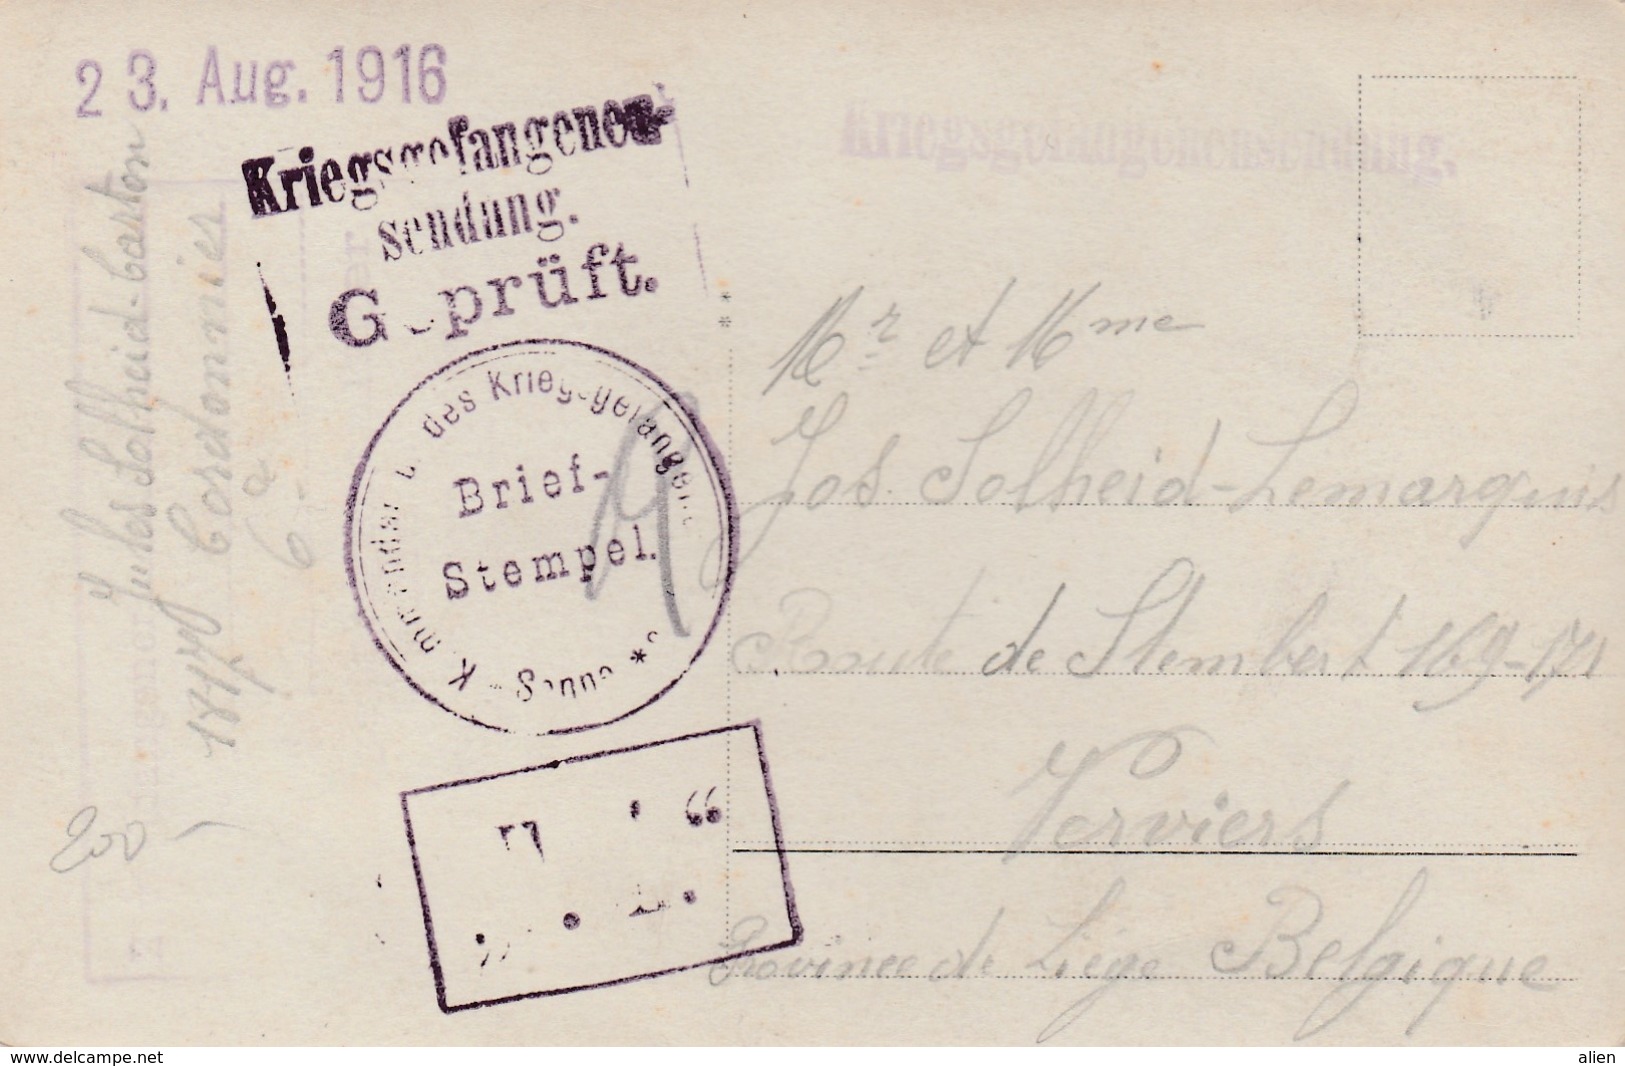 23. Aug. 1916
Kriegsgefangenen-
sendung.
Geprüft.
Kriegsgefangenensendung.
des Kriegsgefangenen
Brief-
Stempel.
Senne
Jules Solheid-Carton
Cordonnier
6 Cie
200 -
Mr et Mme
Jos. Solheid-Lemarquis
Route de Stembert 169-171
Verviers
Province de Liége Belgique
www.delcampe.net
alien